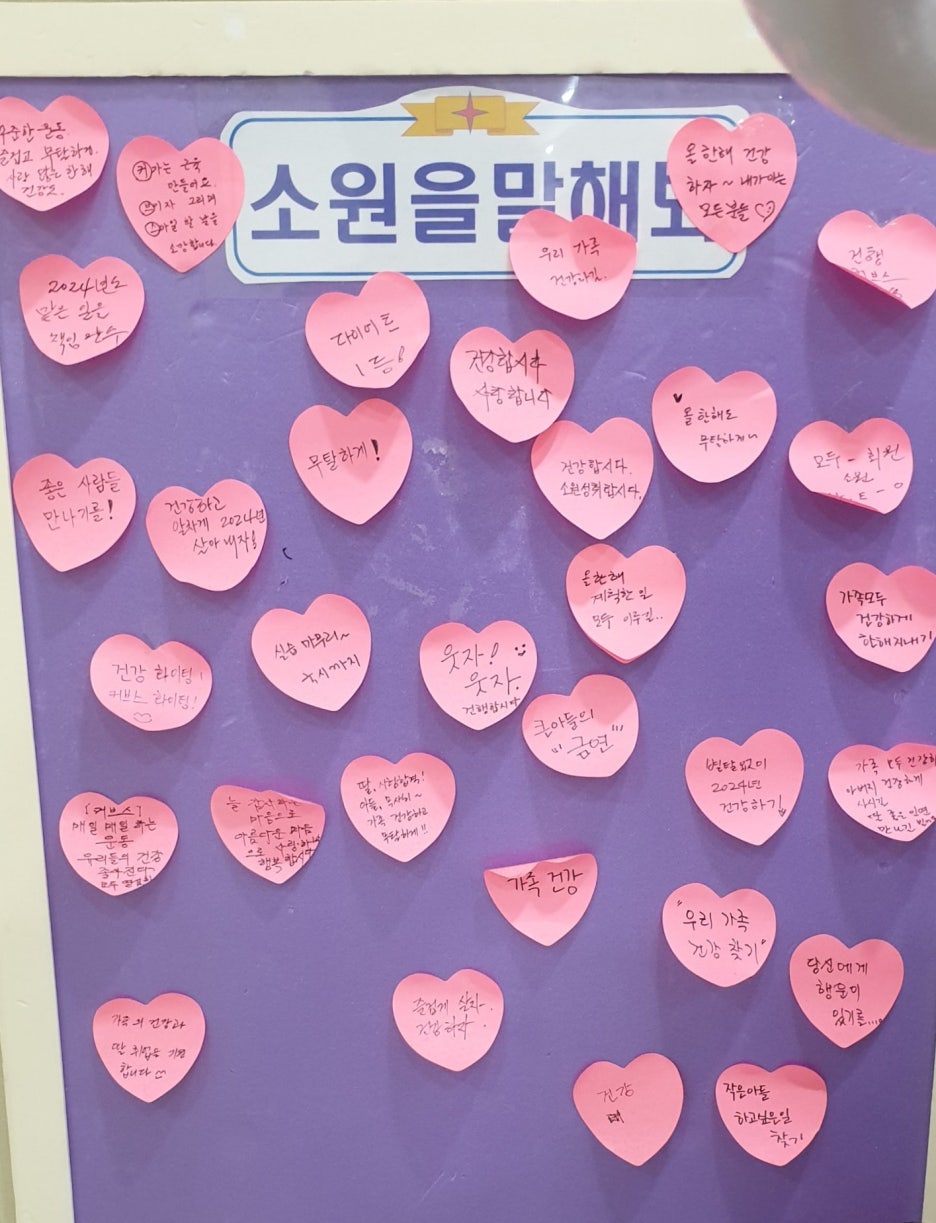 소원을말해
꾸준한 운동
즐겁고 무탈하게.
한해
건강도.
커가는 근육
만들어요.
그리며
소감합니다
올 한해 건강
하자 ~ 내가 아는
모든분들
우리 가족
건강하길.
건행
커브스
2024년도
맡은 일은
책임 완수
다이어트
1등!
건강합시다
사랑합니다
올 한해도
무탈하게~
무탈하게!
건강합시다.
소원성취합시다.
모두 - 회원
소원
좋은 사람들
만나기를!
건강하고
알차게 2024년
살아내자!
올한해
계획한 일
모두 이루길..
가족모두
건강하게
한해지내기
실습 마무리~
까지
건강 화이팅!
커브스 화이팅!
웃자!
웃자!
건행합시다
큰아들의
"금연"
별탈없이
2024년
건강하길
가족 모두 건강히
아버지 건강하게
사시길
딸 좋은 인연
만나길
[커브스]
매일 매일 하는
운동
우리들의 건강
좋아진다
늘 감사하는
마음으로
아름다운 마음
으로 사랑하며
행복합시다
딸, 시험합격!
아들, 무사히~
가족 건강하고
무탈하게!!
가족 건강
"우리 가족
건강 찾기"
당신에게
행운이
있기를....
가족의 건강과
딸 취업을 기원
합니다
즐겁게 살자.
건강하자.
건강
작은아들
하고싶은일
찾기